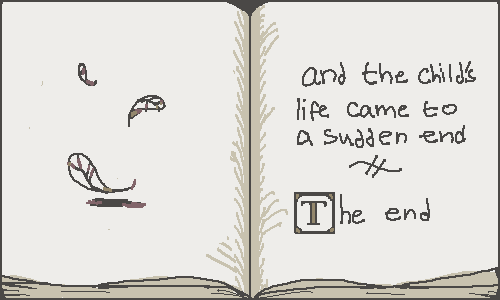 and the child's
life came to
a sudden end
The end